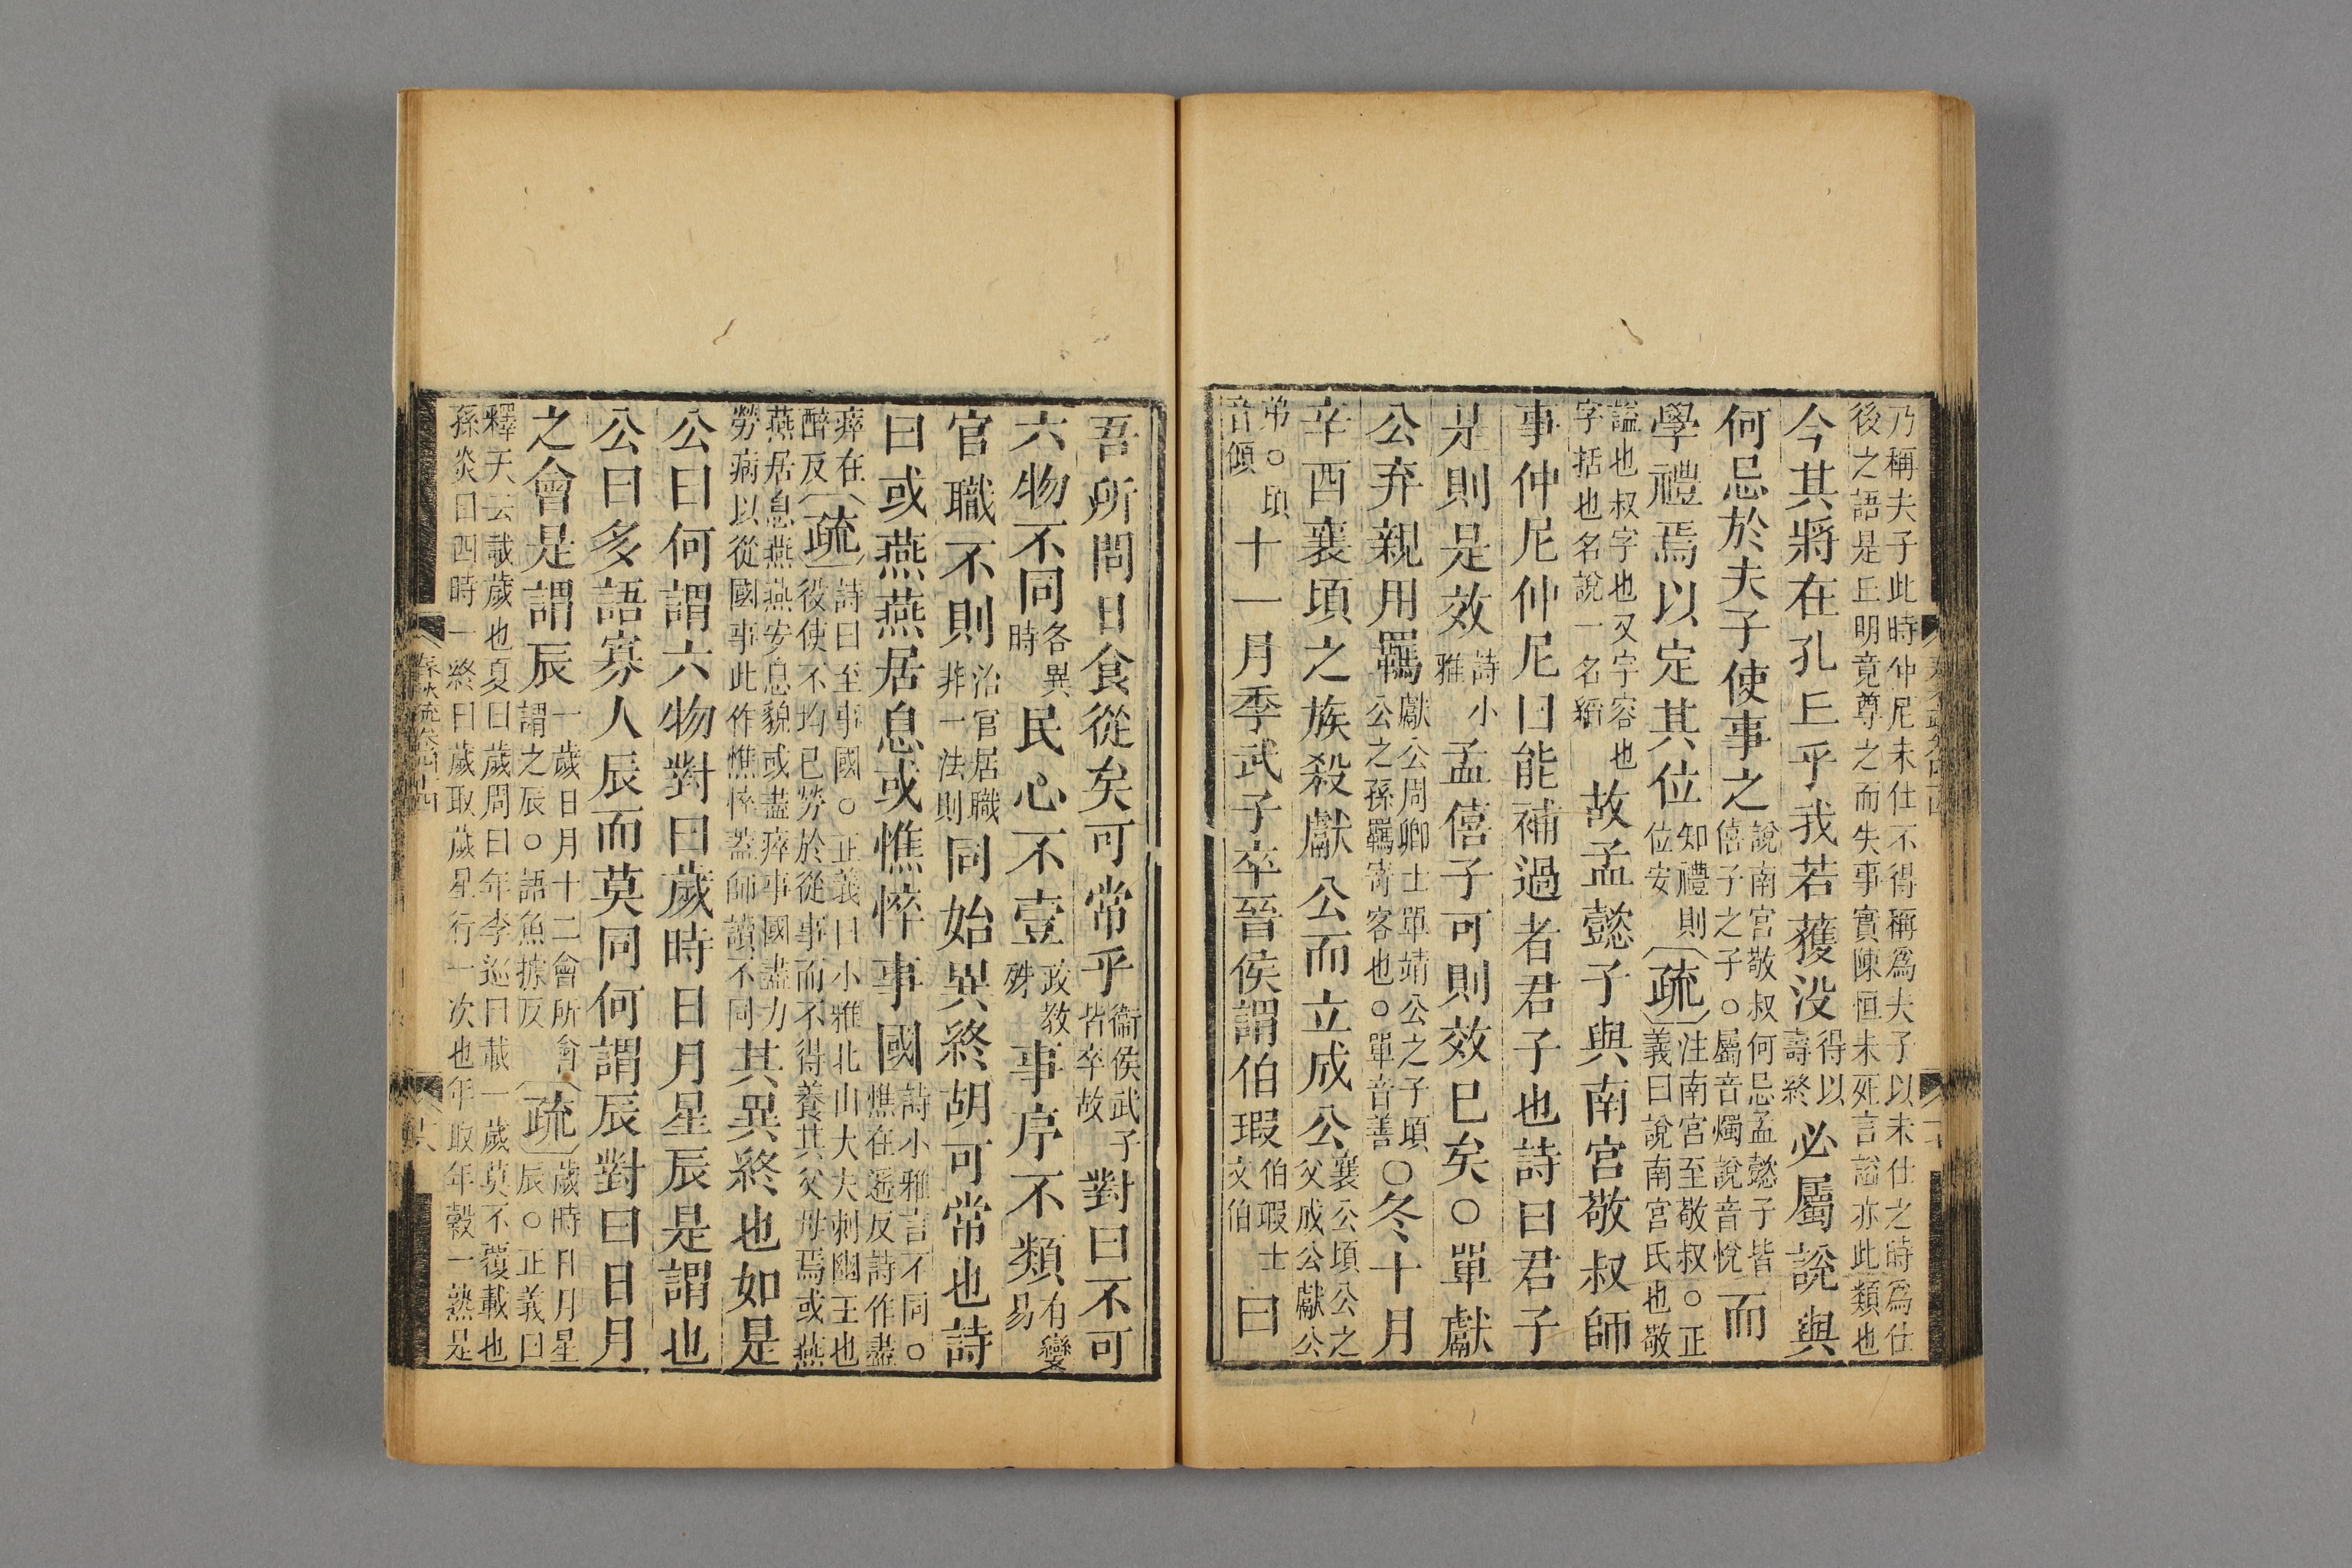 乃稱夫子此時仲尼未仕不得稱爲夫子以未仕之時爲仕
後之語是丘明竟尊之而失事實陳恒未死言謚亦此類也
今其將在孔丘乎我若獲没得以壽終必屬說與
何忌於夫子使事之說南宮敬叔何忌孟懿子皆僖子之子○屬音燭說音悅而
學禮焉以定其位知禮則位安疏注南宮至敬叔○正義曰說南宮氏也敬
謚也叔字也又字容也字括也名說一名縚故孟懿子與南宮敬叔師
事仲尼仲尼曰能補過者君子也詩曰君子
是則是效詩小雅孟僖子可則效已矣○單獻
公弃親用羈獻公周卿士單靖公之子頃公之孫羈寄客也○單音善○冬十月
辛酉襄頃之族殺獻公而立成公襄公頃公之父成公獻公
弟○頃音傾十一月季武子卒晉侯謂伯瑕伯瑕士文伯曰
吾所問日食從矣可常乎衞侯武子皆卒故對曰不可
六物不同各異時民心不壹政教殊事序不類有變易
官職不則治官居職非一法則同始異終胡可常也詩
曰或燕燕居息或憔悴事國詩小雅言不同○憔在遥反詩作盡
瘁在醉反疏詩曰至事國○正義曰小雅北山大夫刺幽王也役使不均已勞於從事而不得養其父母焉或燕
燕居息燕燕安息貌或盡瘁事國盡力勞病以從國事此作憔悴蓋師讀不同其異終也如是
公曰何謂六物對曰歲時日月星辰是謂也
公曰多語寡人辰而莫同何謂辰對曰日月
之會是謂辰一歲日月十二會所會謂之辰○語魚據反疏歲時日月星辰○正義曰
釋天云載歲也夏曰歲周曰年李巡曰載一歲莫不覆載也
孫炎曰四時一終曰歲取歲星行一次也年取年穀一熟是
春秋疏卷四十四